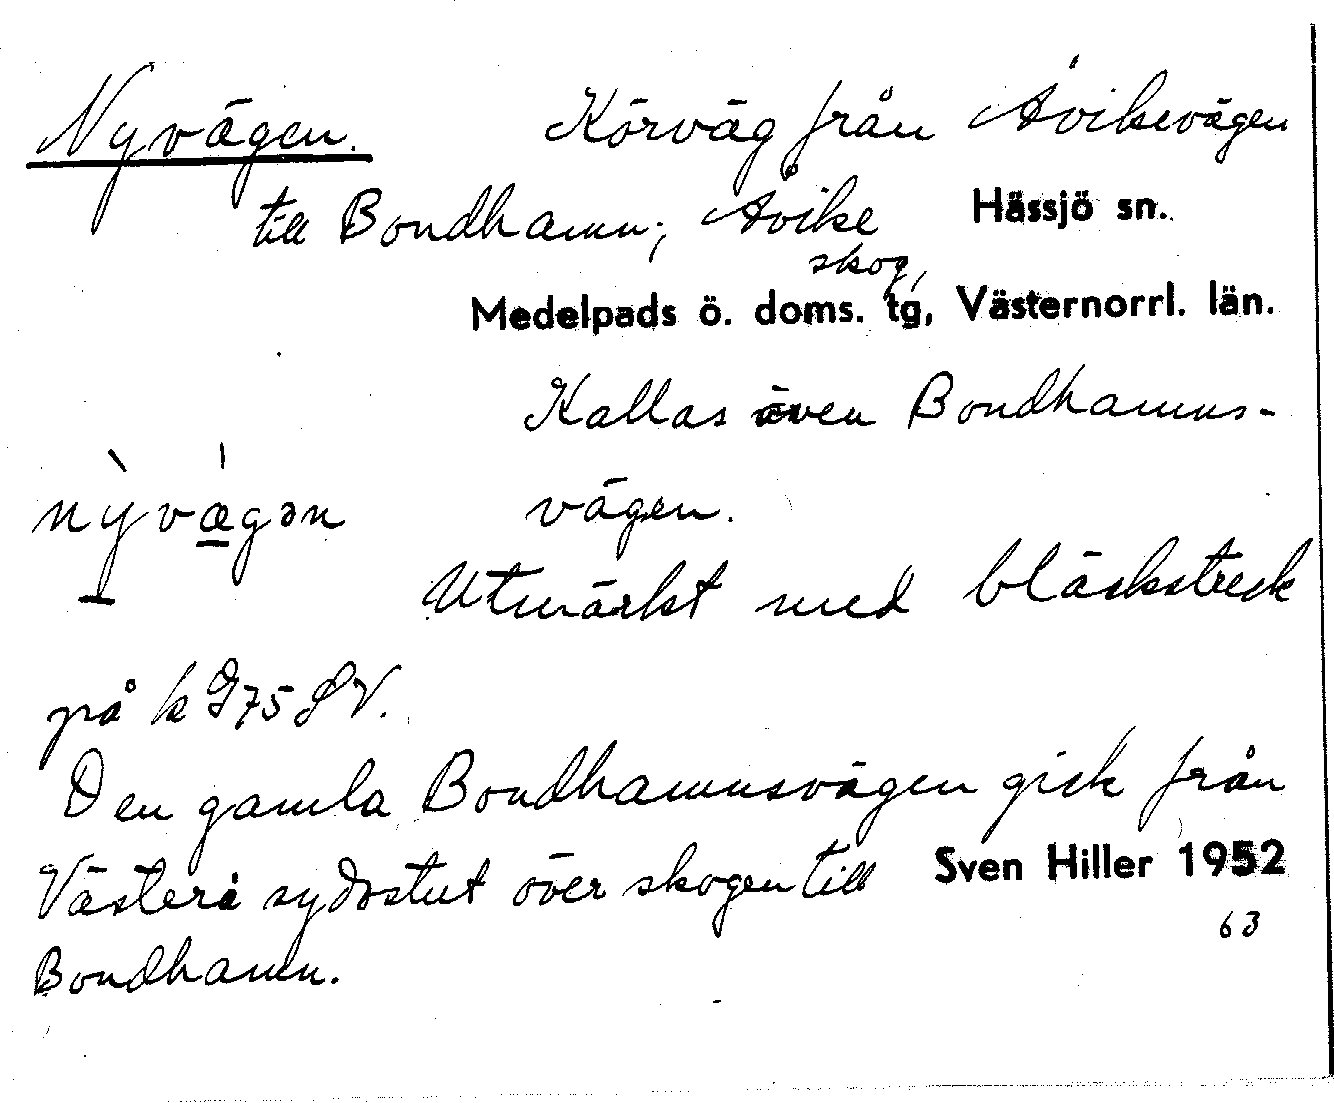 Nyvägen. Körväg från Åvikevägen
till Bondhamn; Åvike Hässjö sn.
skog,
Medelpads ö. doms. tg, Västernorrl. län.
Kallas även Bondhamns-
nỳvæ̲gən vägen.
Utmärkt med bläckstreck
på k 975 SV.
Den gamla Bondhamnsvägen gick från
Västerå sydostut över skogen till Sven Hiller 1952
63
Bondhamn.